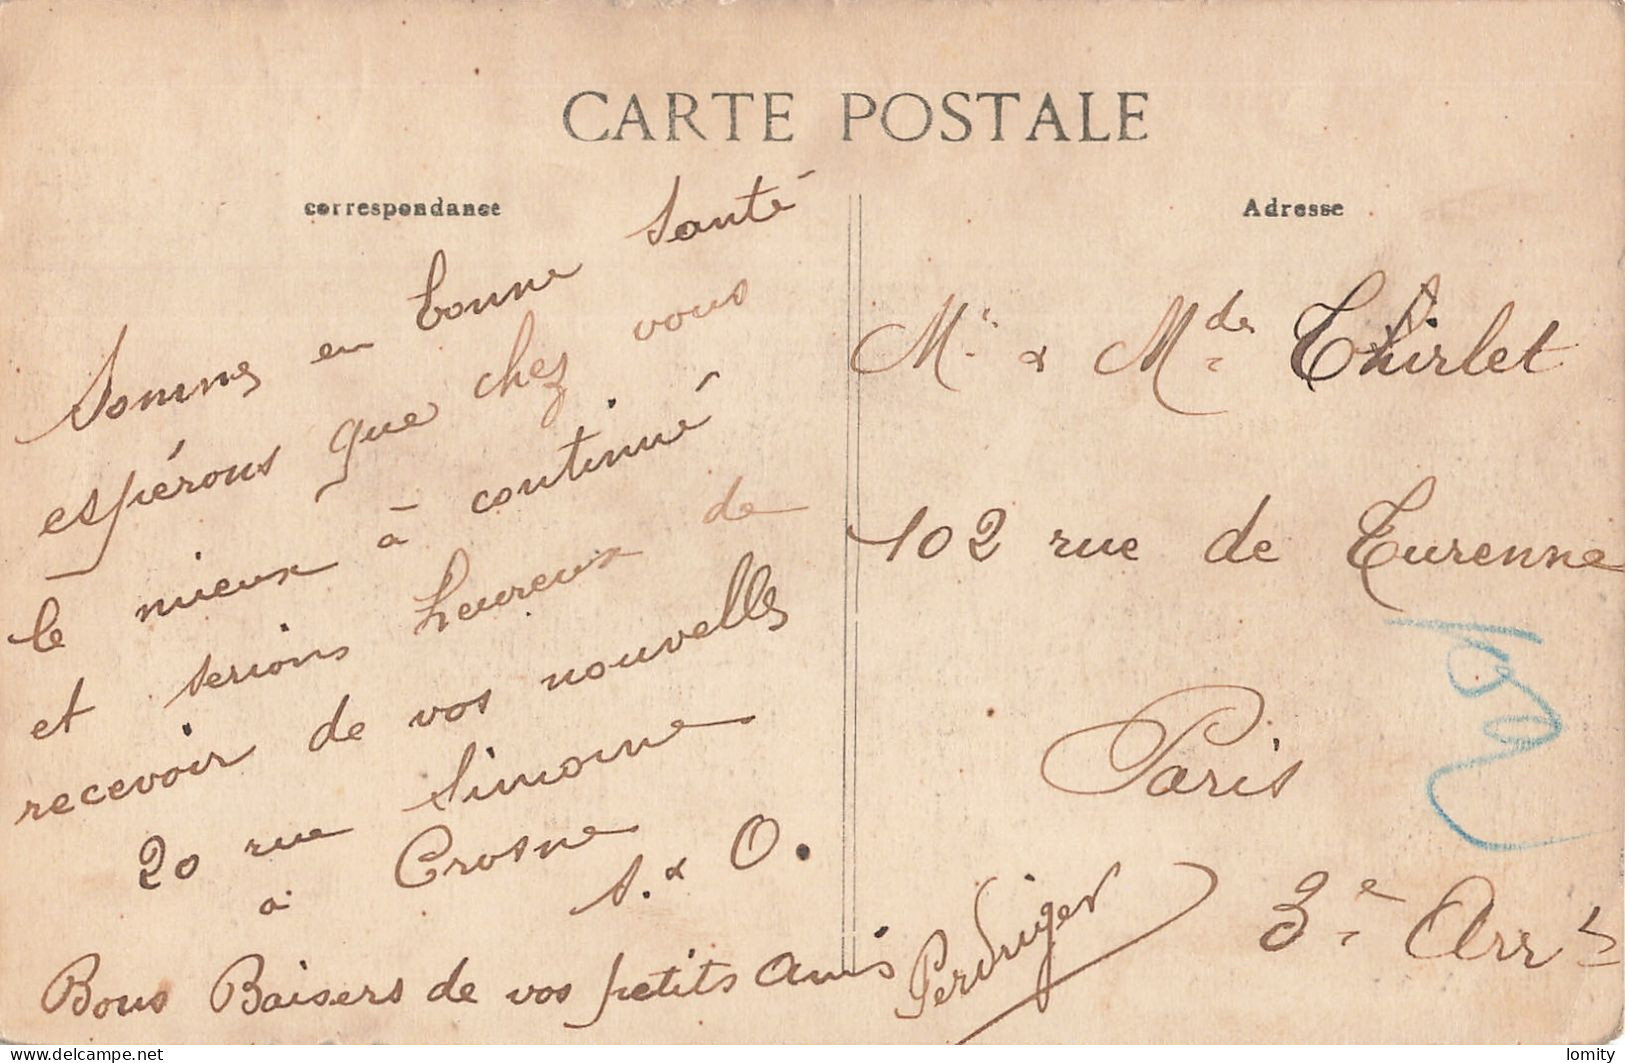 CARTE POSTALE
correspondance
Sommes en bonne santé
espérons que chez vous
le mieux à continué
et serions heureux de
recevoir de vos nouvelles
20 rue Simone
à Crosne
S. & O.
Bons Baisers de vos petits amis
Perdriger
Adresse
Mr & Mde Thirlet
102 rue de Turenne
Paris
3e Arrt
delcampe.net
lomity